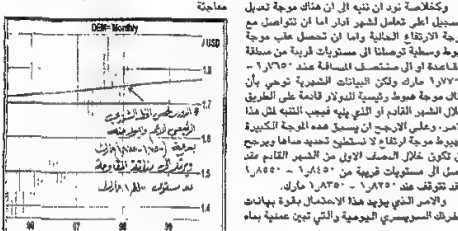 وكخلاصة نود ان ننبه الى ان هناك موجة تعديل
تسجيل أعلى تعامل لشهر ادار اما ان تتواصل مع
موجة الارتفاع الحالية واما ان تحصل عقب موجة
هبوط وسطية توصلنا الى مستويات قريبة من منطقة
القاعدة او الى منتصف المسافة عند ١٫٧٦٥٠ -
١٫٧٧٥٠ مارك ولكن البيانات الشهرية توحي بأن
هناك موجة هبوط رئيسية للدولار قادمة على الطريق
خلال الشهر القادم او الذي يليه فيجب التنبه لمثل هذا
الامر. وعلى الارجح ان يسبق هذه الموجة الكبيرة
للهبوط موجة ارتفاع لا نستطيع تحديد مداها ويرجح
ان تكون خلال النصف الاول من الشهر القادم فقد
تصل الى مستويات قريبة من ١٫٨٤٥٠ - ١٫٨٥٥٠
قد تتوقف عند ١٫٨٢٥٠ - ١٫٨٣٥٠ مارك.
والامر الذي يؤيد هذا الاحتمال بقوة بيانات
الفرنك السويسري اليومية والتي تبين عملية بناء
مفاجئة
DEM= Monthly
/USD
1.8
1.7
1.6
1.5
1.4
96
97
98
99